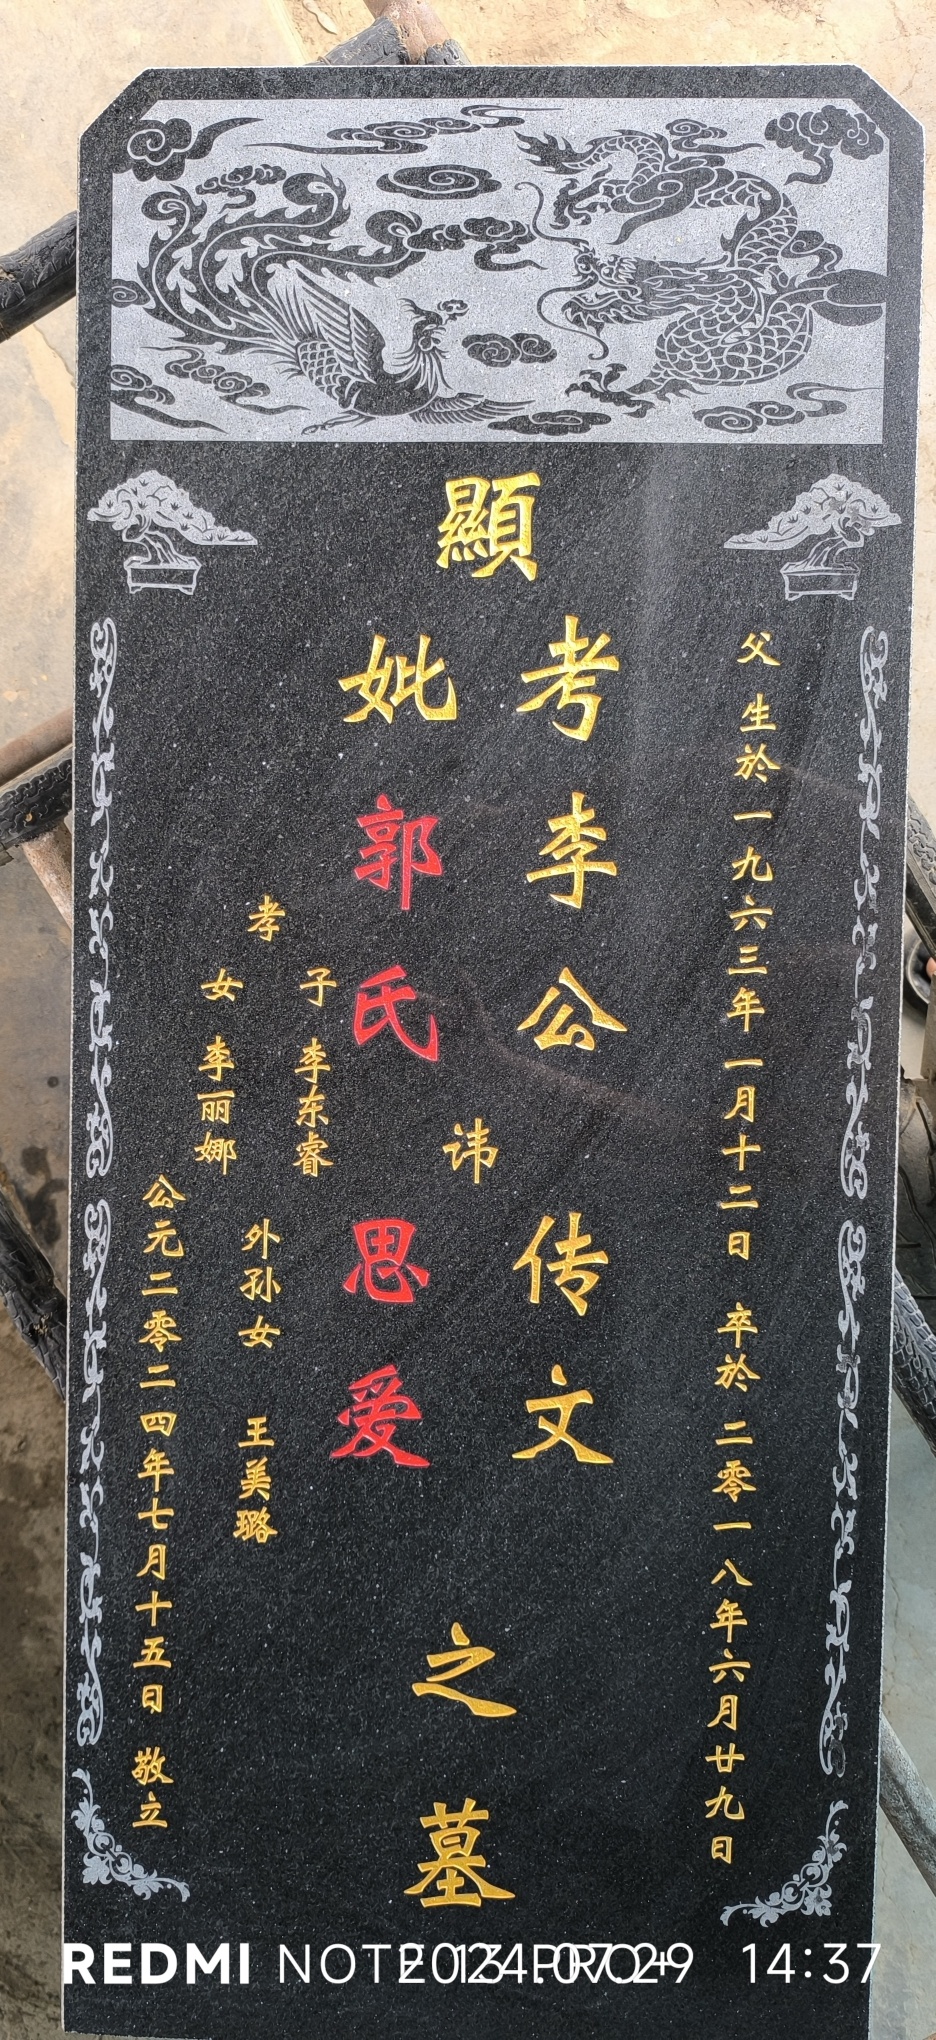 父 生於一九六三年一月十二日 卒於二零一八年六月廿九日
顯
考李公
妣郭氏
讳
传文
思爱
之墓
孝
子 李东睿
女 李丽娜
外孙女 王美璐
公元二零二四年七月十五日 敬立
REDMI NOTE 13 PRO+ 2024.07.29 14:37